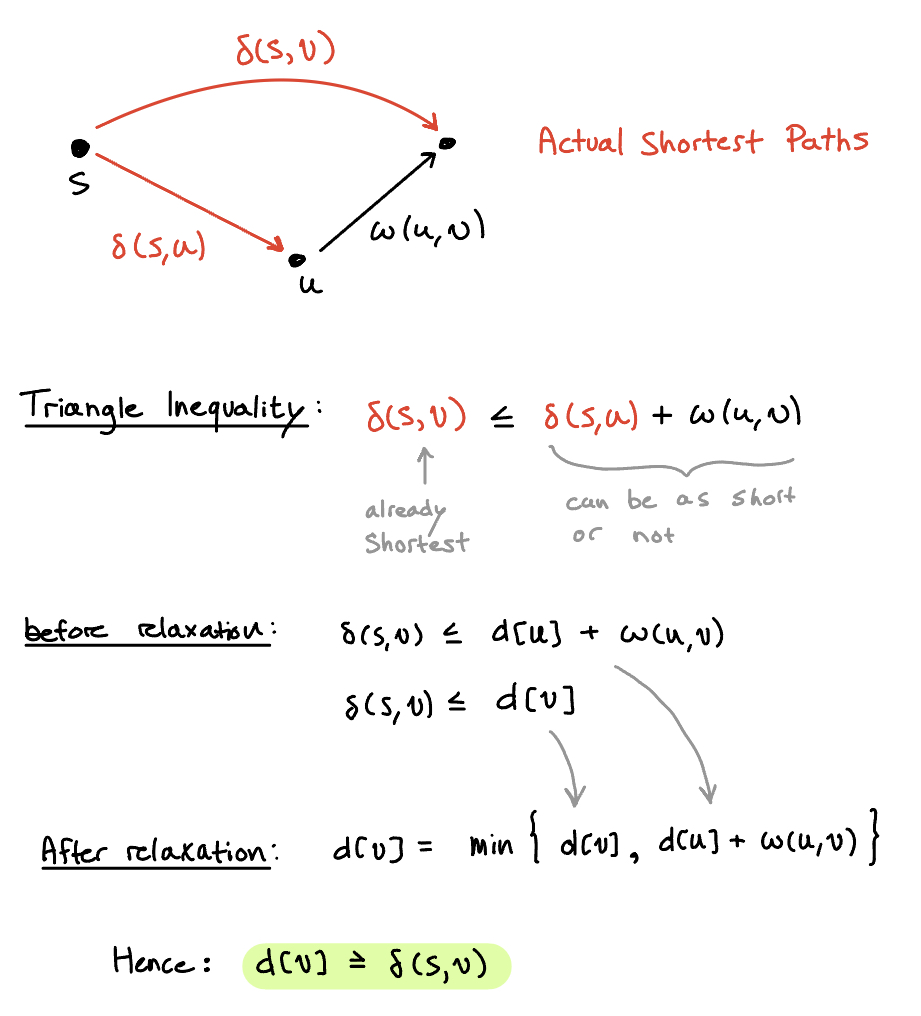 δ(s,v)
Actual Shortest Paths
s
δ(s,u)
ω(u,v)
u
Triangle Inequality: δ(s,v) ≤ δ(s,u) + ω(u,v)
already
Shortest
can be as short
or not
before relaxation: δ(s,v) ≤ d[u] + ω(u,v)
δ(s,v) ≤ d[v]
After relaxation: d[v] = min { d[v], d[u] + ω(u,v) }
Hence: d[v] ≥ δ(s,v)